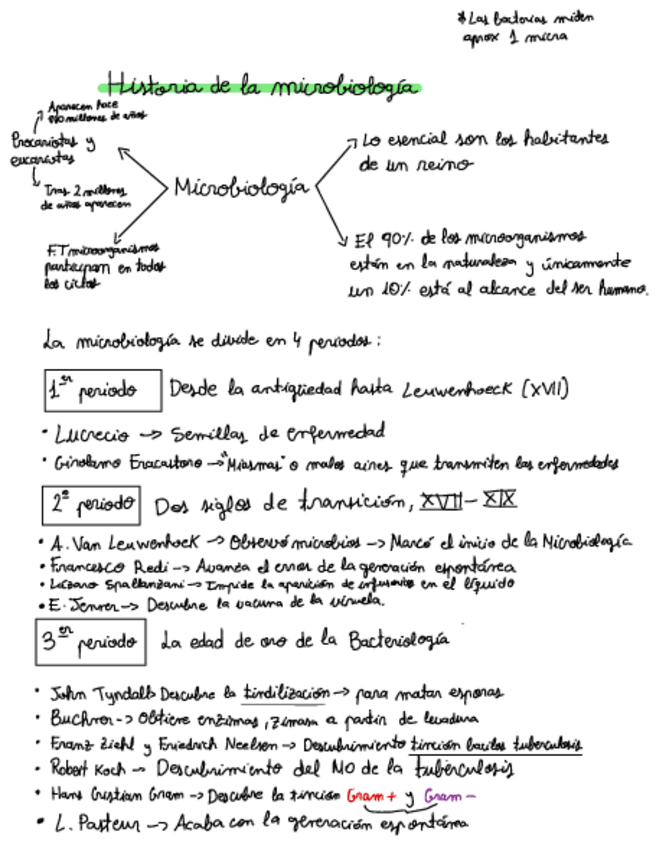 * Las bacterias miden
aprox 1 micra
Historia de la microbiología
Aparecen hace
millones de años
Procariotas y
eucariotas
Tras 2 millones
de años aparecen
Lo esencial son los habitantes
de un reino
Microbiología
F.T microorganismos
participan en todos
los ciclos
El 90% de los microorganismos
están en la naturaleza y únicamente
un 10% está al alcance del ser humano.
La microbiología se divide en 4 periodos:
1er periodo Desde la antigüedad hasta Leuwenhoeck (XVII)
• Lucrecio -> Semillas de enfermedad
• Girolamo Fracastoro -> "Miasmas" o malos aires que transmiten las enfermedades
2º periodo Dos siglos de transición, XVII - XIX
• A. Van Leuwenhoek -> Observó microbios -> Marcó el inicio de la Microbiología
• Francesco Redi -> Avanza el error de la generación espontárea
• Lázaro Spallanzani -> Impide la aparición de infusorios en el líquido
• E. Jenner -> Descubre la vacuna de la viruela.
3er periodo La edad de oro de la Bacteriología
• John Tyndall Descubre la tindilización -> para matar esporas
• Buchner -> Obtiene enzimas, zimasa a partir de levadura
• Franz Ziehl y Friedrich Neelsen -> Descubrimiento tinción bacilos tuberculosis
• Robert Koch -> Descubrimiento del MO de la tuberculosis
• Hans Cristian Gram -> Descubre la tinción Gram + y Gram -
• L. Pasteur -> Acaba con la generación espontánea